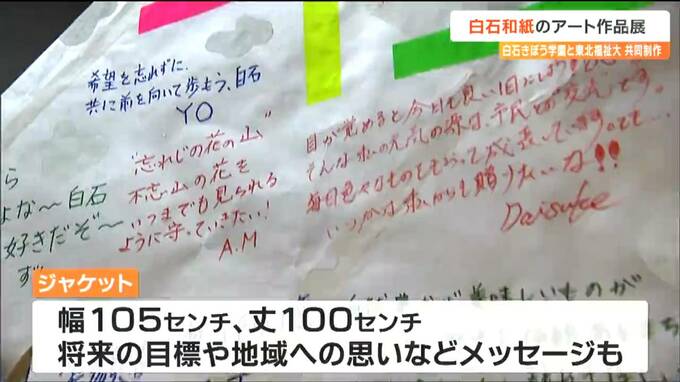 白石和紙のアート作品展
白石きぼう学園と東北福祉大 共同制作
希望を忘れずに、
共に前を向いて歩もう、白石
YO
"忘れじの花の山"
不忘山の花を
いつまでも見られる
ように守っていきたい!
A.M
ら
よな〜白石
好きだぞ〜
ず
目が覚めると今日も良い1日にしようと
そんな私の元気の源は、市民との"交流"です。
毎日色々なものをもらって成長しています。でも…
いつかは私からも贈りたいな!!
Daisuke
美味しいものが
ジャケット
幅105センチ、丈100センチ
将来の目標や地域への思いなどメッセージも